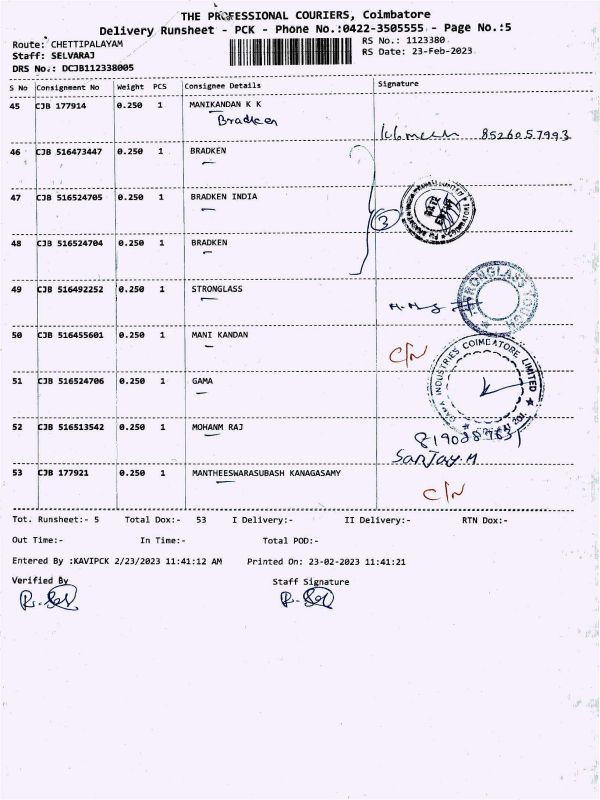 THE PROFESSIONAL COURIERS, Coimbatore
Delivery Runsheet - PCK - Phone No.:0422-3505555 - Page No.:5
Route: CHETTIPALAYAM
RS No.: 1123380
Staff: SELVARAJ
RS Date: 23-Feb-2023
DRS No.: DCJB112338005
S No Consignment No Weight PCS Consignee Details Signature
45 CJB 177914 0.250 1 MANIKANDAN K K
Bradken
8526057993
46 CJB 516473447 0.250 1 BRADKEN
47 CJB 516524705 0.250 1 BRADKEN INDIA
3
48 CJB 516524704 0.250 1 BRADKEN
49 CJB 516492252 0.250 1 STRONGLASS
50 CJB 516455601 0.250 1 MANI KANDAN
C/N
INDUSTRIES COIMBATORE LIMITED
51 CJB 516524706 0.250 1 GAMA
52 CJB 516513542 0.250 1 MOHANM RAJ
SanJay.M
53 CJB 177921 0.250 1 MANTHEESWARASUBASH KANAGASAMY
C/N
Tot. Runsheet:- 5 Total Dox:- 53 I Delivery:- II Delivery:- RTN Dox:-
Out Time:- In Time:- Total POD:-
Entered By :KAVIPCK 2/23/2023 11:41:12 AM Printed On: 23-02-2023 11:41:21
Verified By Staff Signature